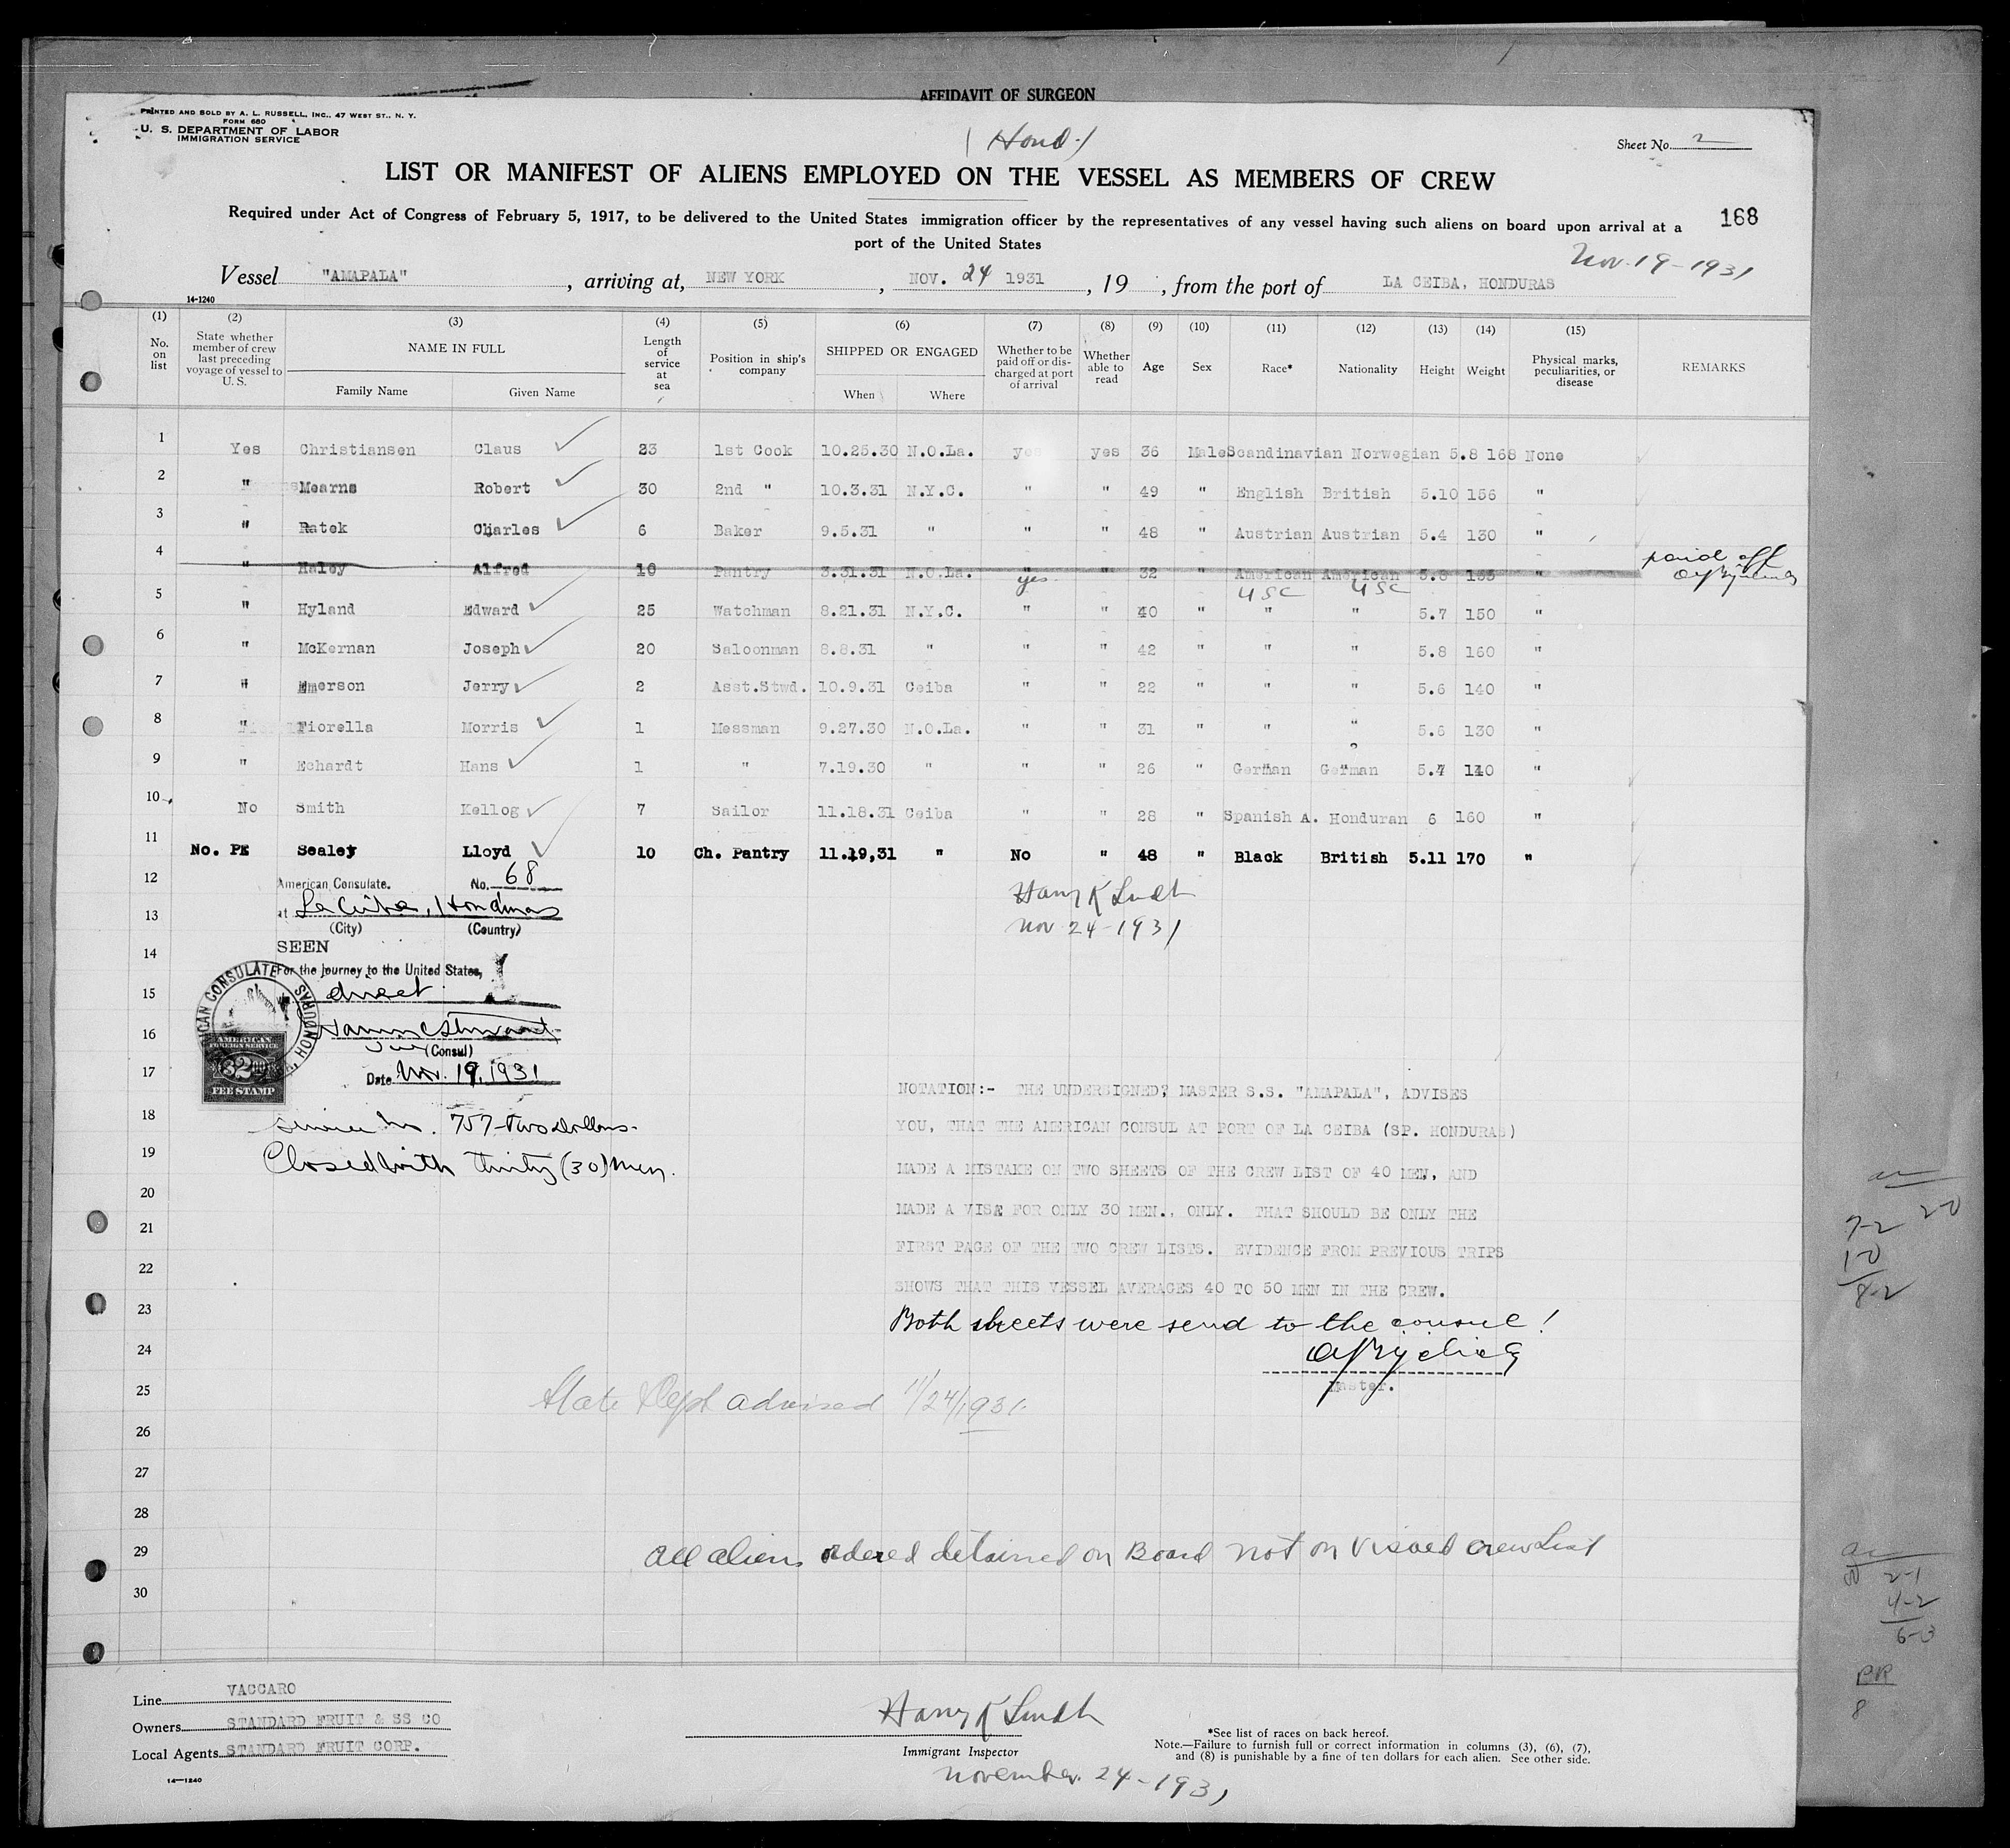 AFFIDAVIT OF SURGEON
PRINTED AND SOLD BY A. L. RUSSELL, INC., 47 WEST ST., N. Y.
FORM 680
U. S. DEPARTMENT OF LABOR
IMMIGRATION SERVICE
(Hond.)
Sheet No. 2
LIST OR MANIFEST OF ALIENS EMPLOYED ON THE VESSEL AS MEMBERS OF CREW
Required under Act of Congress of February 5, 1917, to be delivered to the United States immigration officer by the representatives of any vessel having such aliens on board upon arrival at a
port of the United States
168
Nov. 19-1931
Vessel "AMAPALA", arriving at, NEW YORK, NOV. 24 1931, 19 , from the port of LA CEIBA, HONDURAS
14-1240
(1) No. on list
(2) State whether member of crew last preceding voyage of vessel to U. S.
(3) NAME IN FULL
Family Name Given Name
(4) Length of service at sea
(5) Position in ship's company
(6) SHIPPED OR ENGAGED
When Where
(7) Whether to be paid off or discharged at port of arrival
(8) Whether able to read
(9) Age
(10) Sex
(11) Race*
(12) Nationality
(13) Height
(14) Weight
(15) Physical marks, peculiarities, or disease
REMARKS
1 Yes Christiansen Claus 23 1st Cook 10.25.30 N.O.La. yes yes 36 Male Scandinavian Norwegian 5.8 168 None
2 " Mearns Robert 30 2nd " 10.3.31 N.Y.C. " " 49 " English British 5.10 156 "
3 " Ratek Charles 6 Baker 9.5.31 " " " 48 " Austrian Austrian 5.4 130 "
4 " Haley Alfred 10 Pantry 3.31.31 N.O.La. " " 32 " American American 5.8 135 " paid off
yes USC USC
5 " Hyland Edward 25 Watchman 8.21.31 N.Y.C. " " 40 " " " 5.7 150 "
6 " McKernan Joseph 20 Saloonman 8.8.31 " " " 42 " " " 5.8 160 "
7 " Emerson Jerry 2 Asst.Stwd. 10.9.31 Ceiba " " 22 " " " 5.6 140 "
8 " Fiorella Morris 1 Messman 9.27.30 N.O.La. " " 31 " " " 5.6 130 "
9 " Echardt Hans 1 " 7.19.30 " " " 26 " German German 5.7 140 "
10 No Smith Kellog 7 Sailor 11.18.31 Ceiba " " 28 " Spanish A. Honduran 6 160 "
11 No. PE Sealey Lloyd 10 Ch. Pantry 11.19,31 " No " 48 " Black British 5.11 170 "
12
13
14
15
16
17
18
19
20
21
22
23
24
25
26
27
28
29
30
American Consulate. No. 68
at La Ceiba, Honduras
(City) (Country)
SEEN
For the journey to the United States,
direct
(Consul)
Date Nov. 19, 1931
AMERICAN CONSULATE HONDURAS
AMERICAN
FOREIGN SERVICE
$2.00
FEE STAMP
Service No. 757-two dollars.
Closed with thirty (30) men.
Harry K Lindh
Nov 24-1931
NOTATION:- THE UNDERSIGNED, MASTER S.S. "AMAPALA", ADVISES
YOU, THAT THE AMERICAN CONSUL AT PORT OF LA CEIBA (SP. HONDURAS)
MADE A MISTAKE ON TWO SHEETS OF THE CREW LIST OF 40 MEN, AND
MADE A VISA FOR ONLY 30 MEN., ONLY. THAT SHOULD BE ONLY THE
FIRST PAGE OF THE TWO CREW LISTS. EVIDENCE FROM PREVIOUS TRIPS
SHOWS THAT THIS VESSEL AVERAGES 40 TO 50 MEN IN THE CREW.
Both sheets were send to the consul!
Master.
State Dept advised 11/24/1931.
All aliens ordered detained on Board not on visaed crew List
Line VACCARO
Owners STANDARD FRUIT & SS CO
Local Agents STANDARD FRUIT CORP.
14-1240
Harry K Lindh
Immigrant Inspector
November. 24-1931
*See list of races on back hereof.
Note.—Failure to furnish full or correct information in columns (3), (6), (7),
and (8) is punishable by a fine of ten dollars for each alien. See other side.
7-2 2-0
1-0
8-2
2-1
4-2
6-3
BR
8